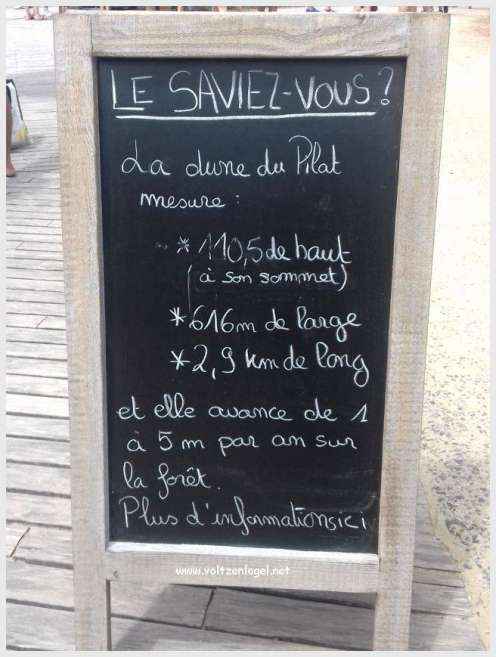 LE SAVIEZ-VOUS?
La dune du Pilat
mesure :
* 110,5 de haut
(à son sommet)
* 616m de large
* 2,9 km de long
et elle avance de 1
à 5 m par an sur
la forêt.
Plus d'informations ici
www.voltzenlogel.net